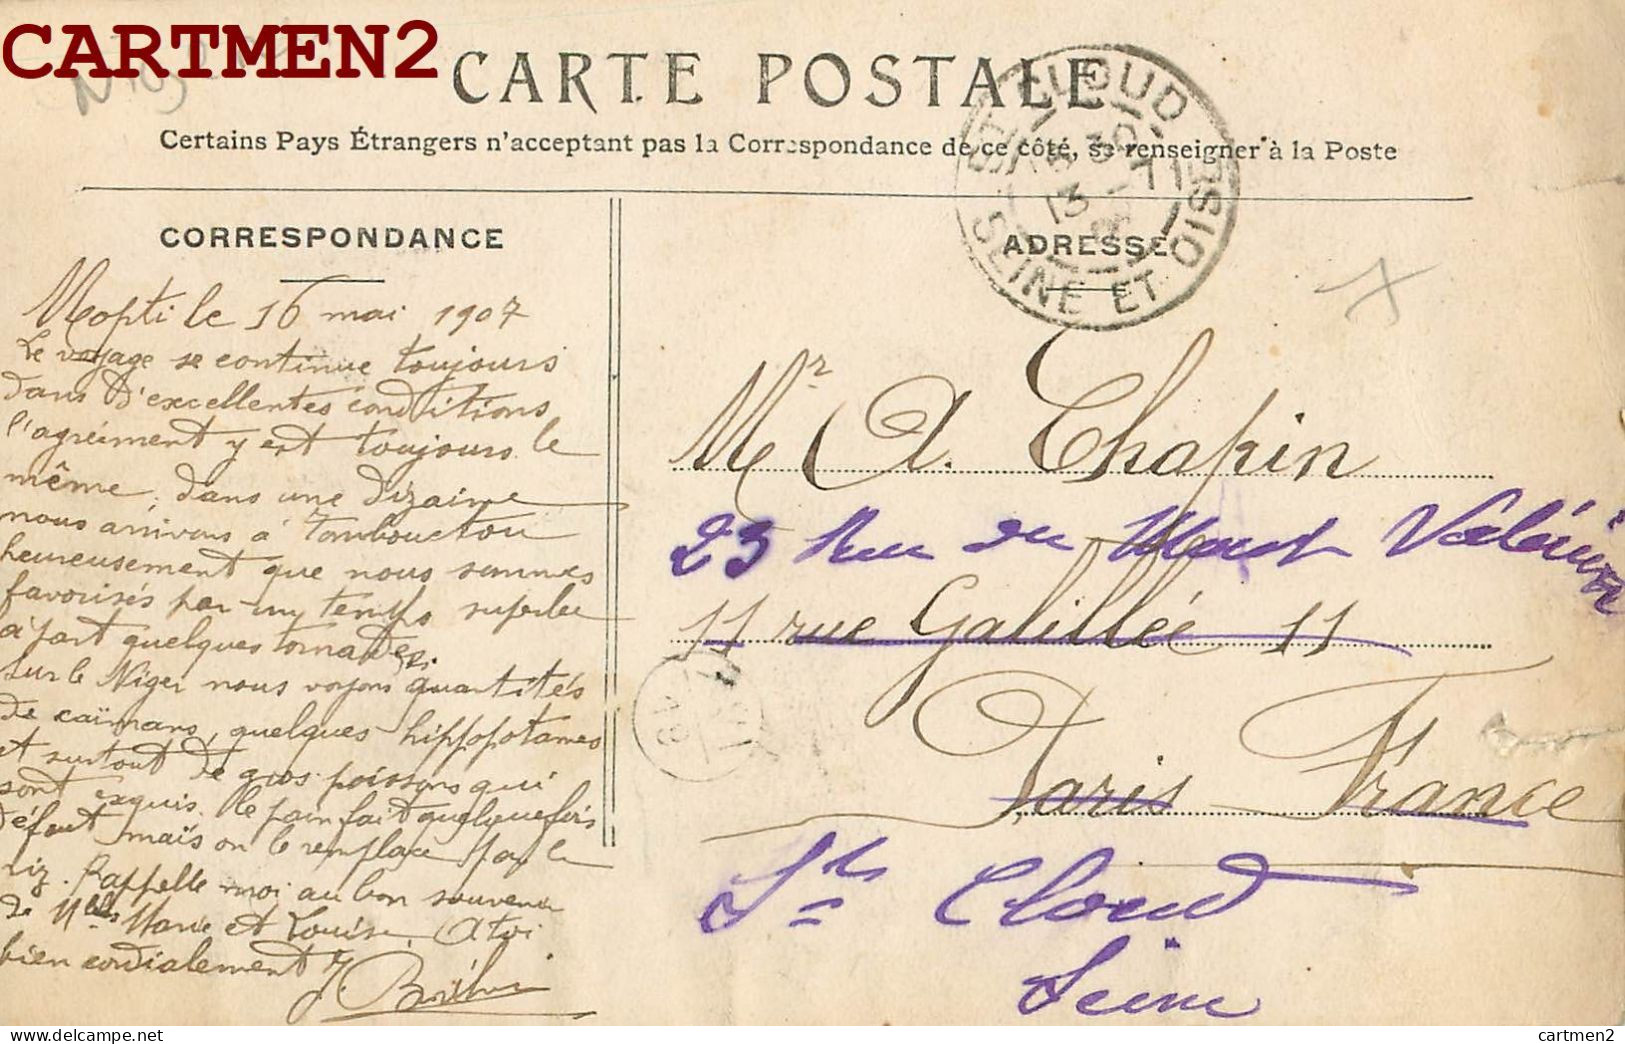 CARTMEN2
CARTE POSTALE
Certains Pays Étrangers n'acceptant pas la Correspondance de ce côté, se renseigner à la Poste
CORRESPONDANCE
Mopti le 16 mai 1907
Le voyage se continue toujours
dans d'excellentes conditions
l'agrément y est toujours le
même, dans une dizaine
nous arrivons à Tombouctou
heureusement que nous sommes
favorisés par un temps superbe
à part quelques tornades.
Sur le Niger nous voyons quantités
de caïmans, quelques hippopotames
et surtout de gros poissons qui
sont exquis. le pain fait quelquefois
défaut maïs on le remplace par le
riz. Rappelle-moi au bon souvenir
de Mlles Marie et Louise. A toi
bien cordialement
ADRESSE
ST CLOUD
SEINE ET OISE
Mr A. Chapin
23 Rue du Mont Valérien
11 rue Galillée 11
Paris France
St Cloud
Seine
cartmen2